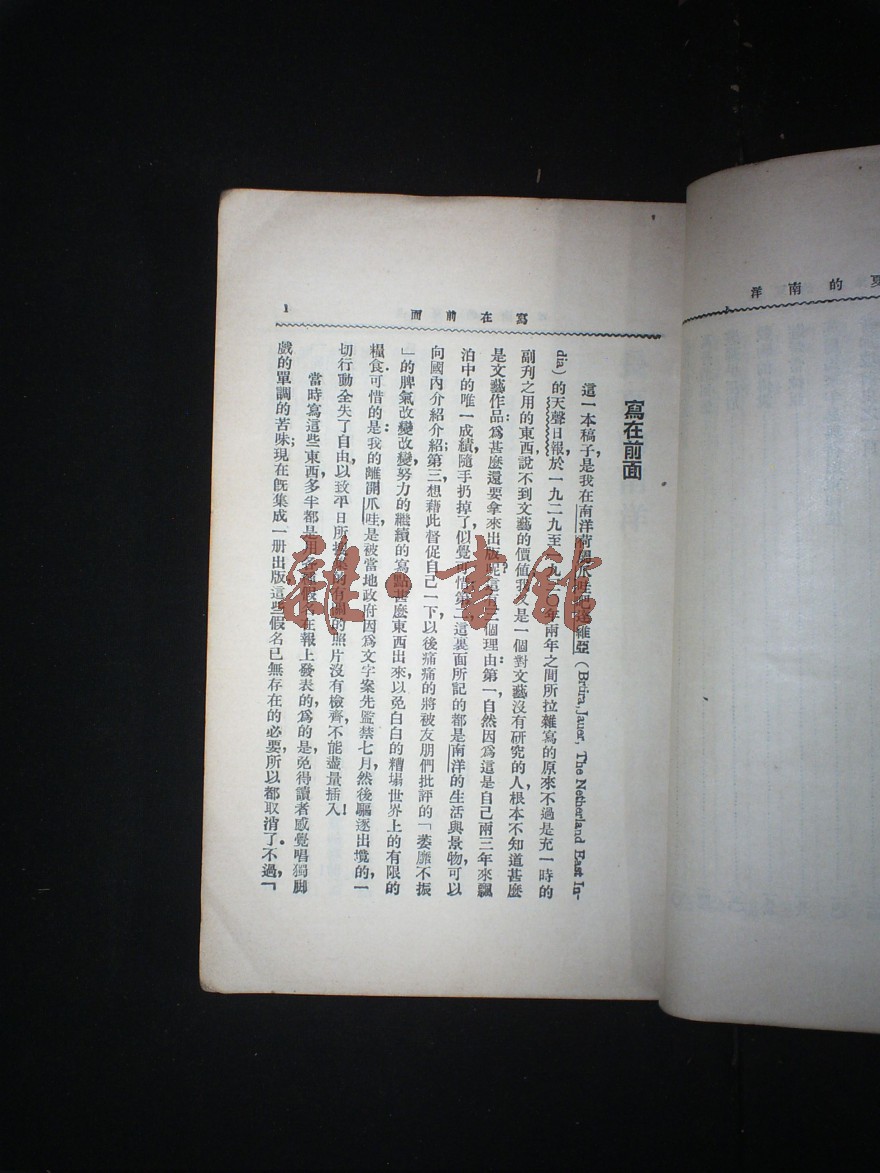 夏的南洋
寫在前面
1
寫在前面
這一本稿子,是我在南洋荷蘭爪哇吧達維亞(Brtira, Jauer, The Netherland East In-
dia)的天聲日報於一九二九至一九三〇年兩年之間所拉雜寫的原來不過是充一時的
副刋之用的東西說不到文藝的價値我又是一個對文藝沒有研究的人,根本不知道甚麼
是文藝作品;爲甚麼還要拿來出版呢?這有三個理由:第一,自然因爲這是自己兩三年來飄
泊中的唯一成績,隨手扔掉了,似覺可惜第二,這裏面所記的都是南洋的生活與景物,可以
向國內介紹介紹;第三,想藉此督促自己一下,以後痛痛的將被友朋們批評的「萎靡不振
」的脾氣改變改變,努力的繼續的寫點甚麼東西出來,以免白白的糟塌世界上的有限的
糧食.可惜的是:我的離開爪哇,是被當地政府因爲文字案先監禁七月,然後驅逐出境的,一
切行動全失了自由,以致平日所搜集的有關的照片沒有檢齊,不能盡量插入!
當時寫這些東西,多半都是用各種假名在報上發表的,爲的是,免得讀者感覺唱獨脚
戲的單調的苦味;現在旣集成一册出版,這些假名已無存在的必要,所以都取消了.不過,「
雜·書館